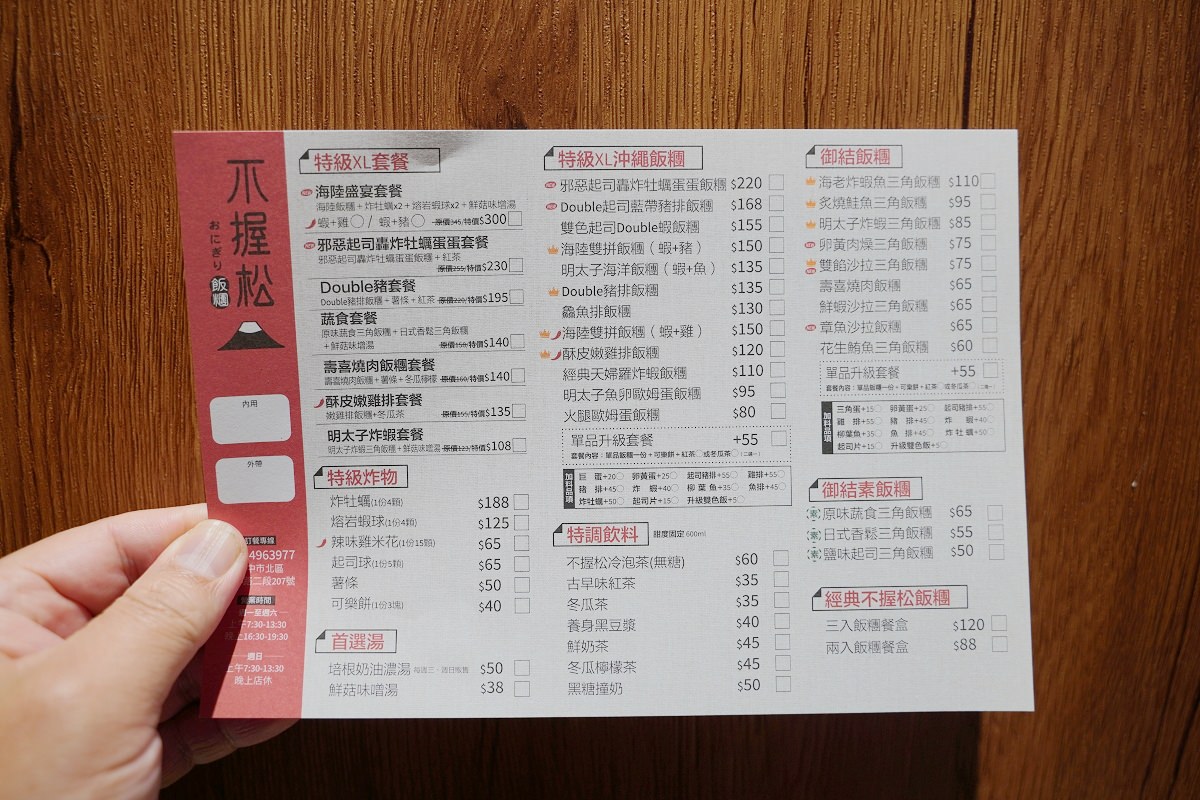 不握松
おにぎり
飯糰
內用
外帶
訂餐專線
4963977
中市北區
二段207號
營業時間
週一至週六
上午7:30-13:30
晚上16:30-19:30
週日
上午7:30-13:30
晚上店休
特級XL套餐
海陸盛宴套餐
海陸飯糰+炸牡蠣x2+熔岩蝦球x2+鮮菇味增湯
蝦+雞 / 蝦+豬 原價345/特價$300
邪惡起司轟炸牡蠣蛋蛋套餐
邪惡起司轟炸牡蠣蛋蛋飯糰+紅茶
原價255/特價$230
Double豬套餐
Double豬排飯糰+薯條+紅茶 原價220/特價$195
蔬食套餐
原味蔬食三角飯糰+日式香鬆三角飯糰
+鮮菇味增湯 原價158/特價$140
壽喜燒肉飯糰套餐
壽喜燒肉飯糰+薯條+冬瓜檸檬 原價160/特價$140
酥皮嫩雞排套餐
嫩雞排飯糰+冬瓜茶 原價155/特價$135
明太子炸蝦套餐
明太子炸蝦三角飯糰+鮮菇味增湯 原價123/特價$108
特級炸物
炸牡蠣(1份4顆) $188
熔岩蝦球(1份4顆) $125
辣味雞米花(1份15顆) $65
起司球(1份5顆) $65
薯條 $50
可樂餅(1份3塊) $40
首選湯
培根奶油濃湯 每週三、週日販售 $50
鮮菇味噌湯 $38
特級XL沖繩飯糰
邪惡起司轟炸牡蠣蛋蛋飯糰 $220
Double起司藍帶豬排飯糰 $168
雙色起司Double蝦飯糰 $155
海陸雙拼飯糰(蝦+豬) $150
明太子海洋飯糰(蝦+魚) $135
Double豬排飯糰 $135
鱻魚排飯糰 $130
海陸雙拼飯糰(蝦+雞) $150
酥皮嫩雞排飯糰 $120
經典天婦羅炸蝦飯糰 $110
明太子魚卵歐姆蛋飯糰 $95
火腿歐姆蛋飯糰 $80
單品升級套餐 +55
套餐內容:單品飯糰一份+可樂餅+紅茶 或冬瓜茶 (二選一)
加料品項
巨蛋+20 卵黃蛋+25 起司豬排+55 雞排+55
豬排+45 炸蝦+40 柳葉魚+35 魚排+45
炸牡蠣+50 起司片+15 升級雙色飯+5
特調飲料 甜度固定 600ml
不握松冷泡茶(無糖) $60
古早味紅茶 $35
冬瓜茶 $35
養身黑豆漿 $40
鮮奶茶 $45
冬瓜檸檬茶 $45
黑糖撞奶 $50
御結飯糰
海老炸蝦魚三角飯糰 $110
炙燒鮭魚三角飯糰 $95
明太子炸蝦三角飯糰 $85
卵黃肉燥三角飯糰 $75
雙餡沙拉三角飯糰 $75
壽喜燒肉飯糰 $65
鮮蝦沙拉三角飯糰 $65
章魚沙拉飯糰 $65
花生鮪魚三角飯糰 $60
單品升級套餐 +55
套餐內容:單品飯糰一份+可樂餅+紅茶 或冬瓜茶 (二選一)
加料品項
三角蛋+15 卵黃蛋+25 起司豬排+55
雞排+55 豬排+45 炸蝦+40
柳葉魚+35 魚排+45 炸牡蠣+50
起司片+15 升級雙色飯+5
御結素飯糰
素 原味蔬食三角飯糰 $65
素 日式香鬆三角飯糰 $55
素 鹽味起司三角飯糰 $50
經典不握松飯糰
三入飯糰餐盒 $120
兩入飯糰餐盒 $88